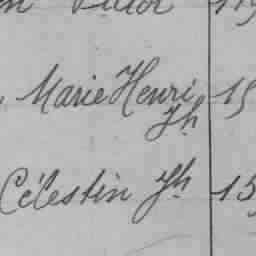 Victor 119
Marie Henri 15
Jh
Célestin Jh 15